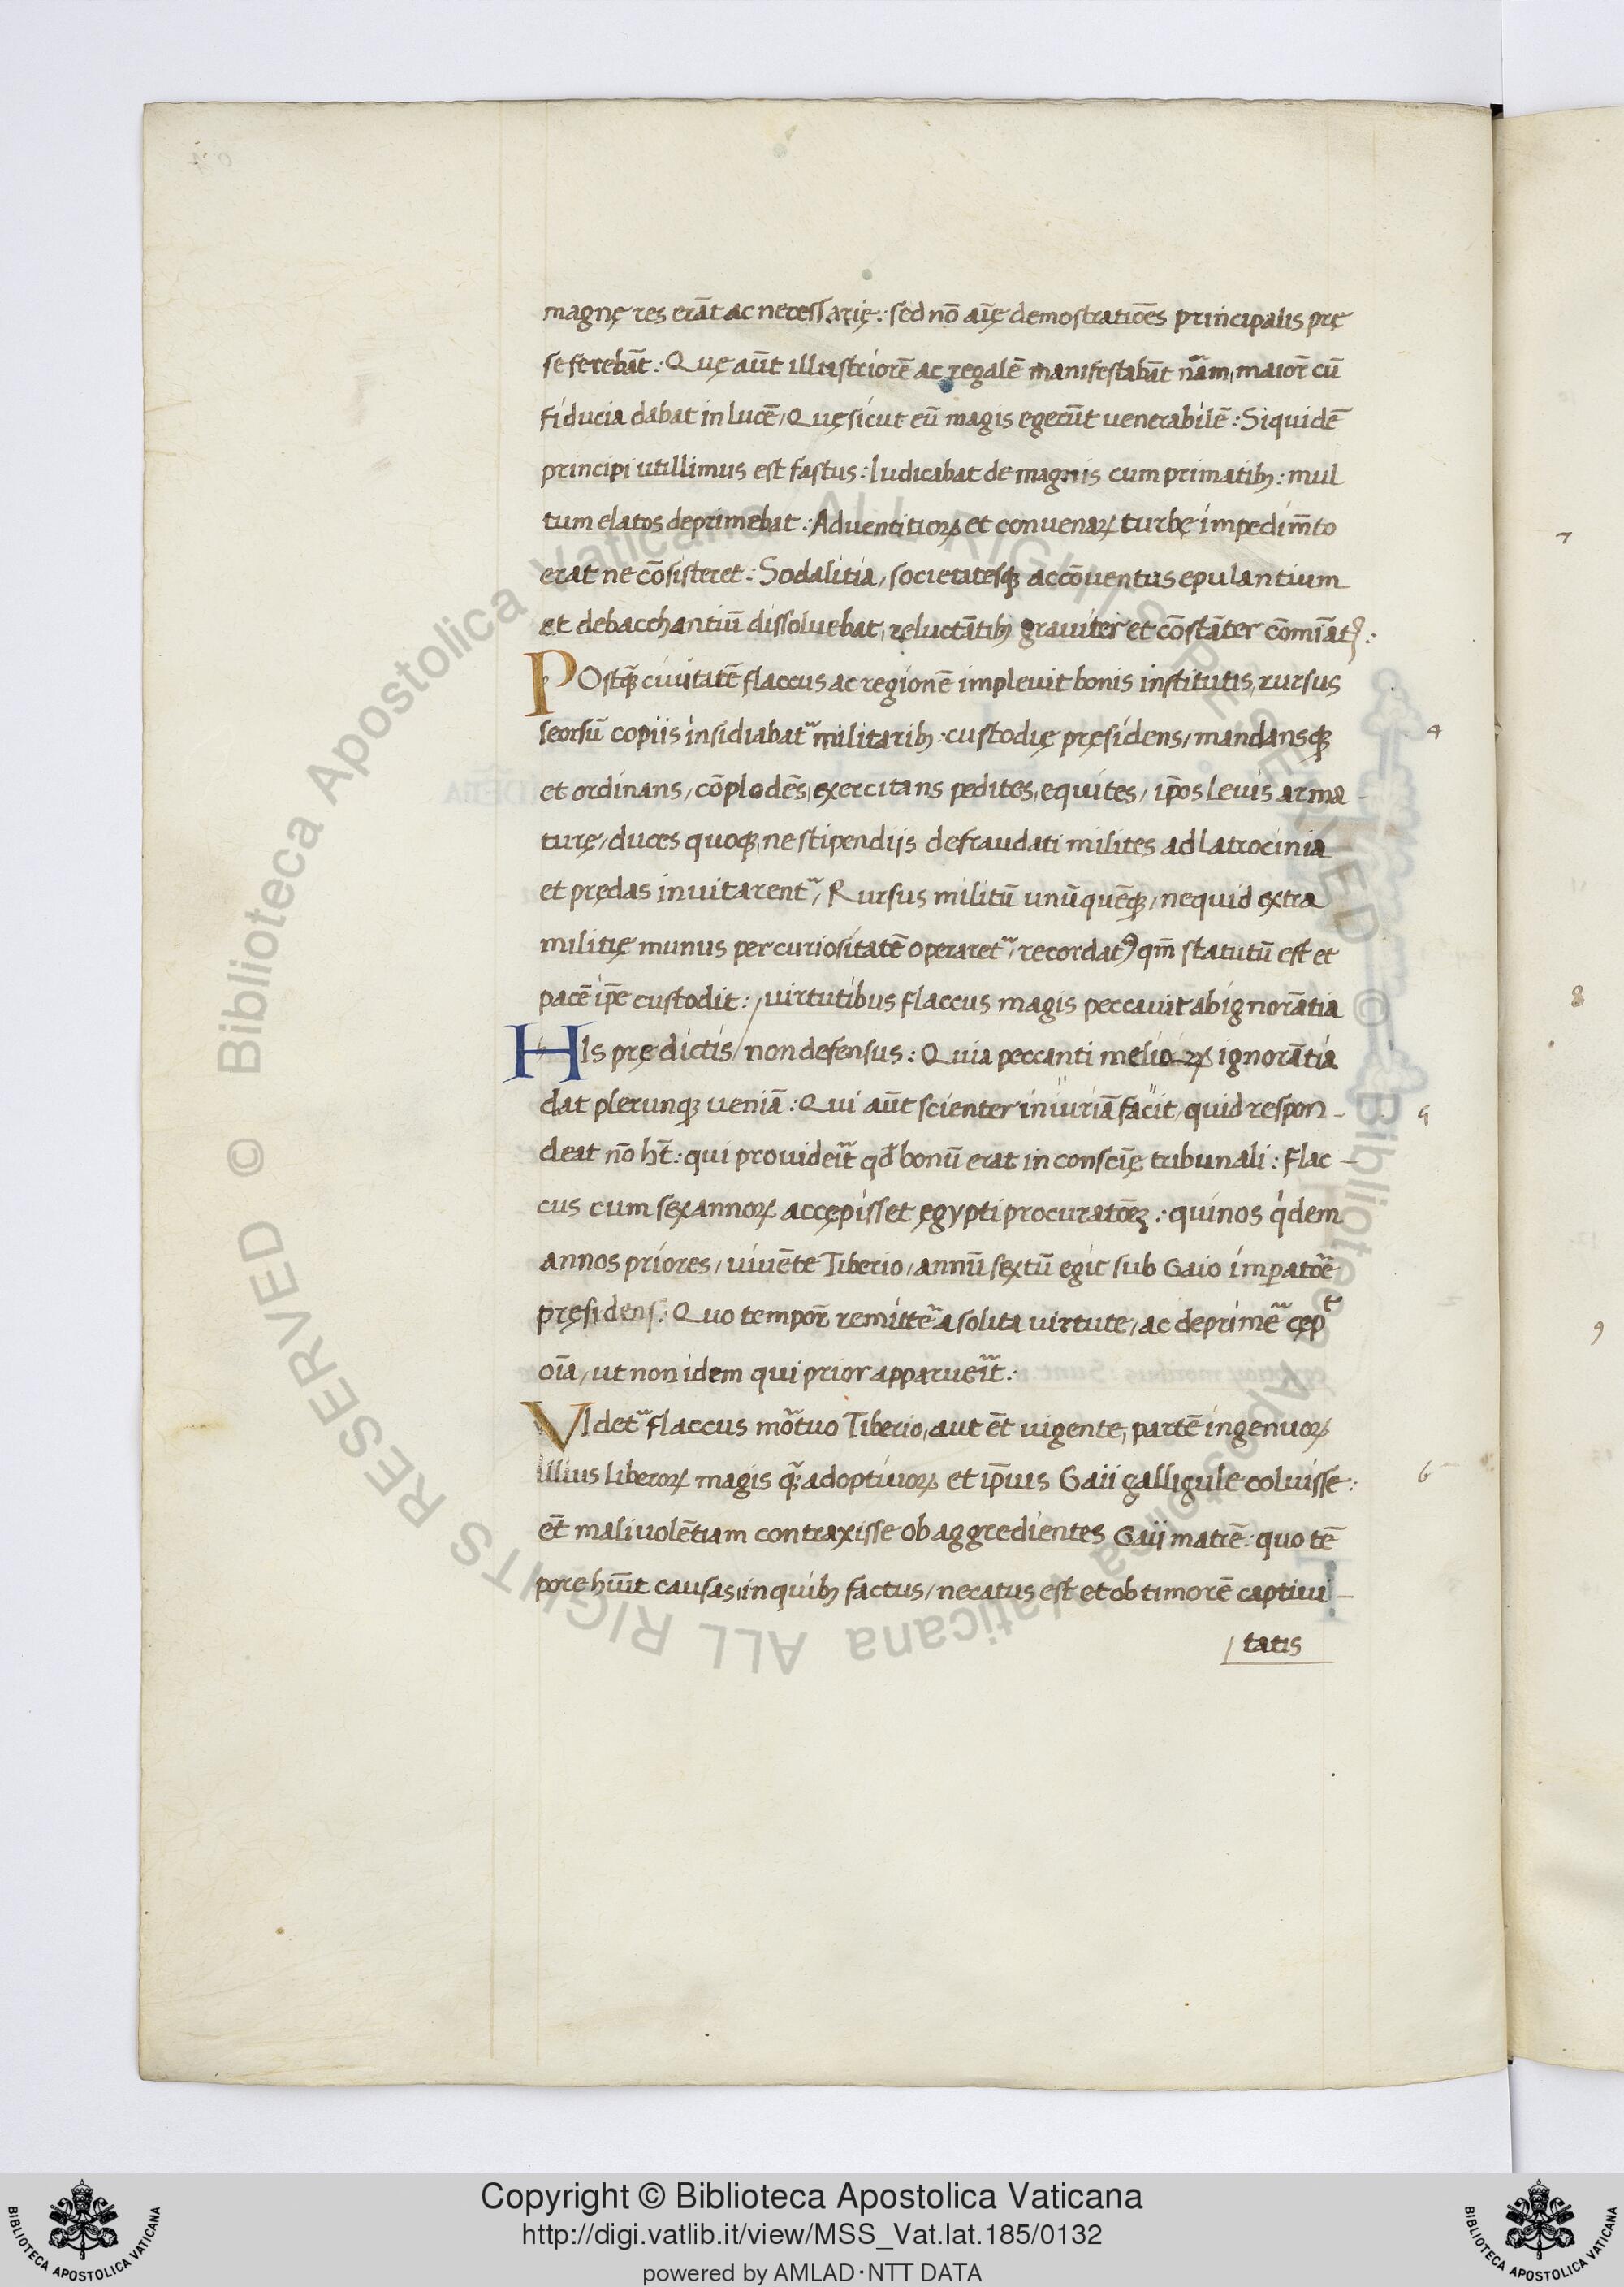 magnę res erāt ac necessarię: sed nō aīę demostratiōes principalis prę
se ferebāt: Quę aūt illustriorē ac regalē manifestabāt nām, maior̄ cū
fiducia dabat in lucē, Quę sicut eū magis egerūt venerabilē: Siquidē
principi utillimus est fastus: Iudicabat de magnis cum primatibꝫ: mul
tum elatos deprimebat: Adventitiorꝝ et convenarꝝ turbę impedim̄to
erat ne cōsisteret: Sodalitia, societatesqꝫ ac cōventus epulantium
et debacchantiū dissoluebat, reluctātibꝫ graviter et cōstāter cōmīatꝰ:
POstqꝫ̄ civitatē flaccus ac regionē implevit bonis institutis, rursus
seorsū copiis insidiabat᷑ militaribꝫ: custodię pręsidens, mandansqꝫ
4
et ordinans, cōplodēs, exercitans pedites, equites, ip̄os levis arma
turę, duces quoqꝫ, ne stipendijs defraudati milites ad latrocinia
et prędas invitarent᷑, Rursus militū unūquēqꝫ, nequid extra
militię munus per curiositatē operaret᷑, recordatꝰ qm̄ statutū est et
pacē ip̄e custodit: / virtutibus flaccus magis peccavit ab ignorātia
HIs prędictis / non defensus: Quia peccanti meliorꝝ ignorātia
dat plerunqꝫ veniā: Qui aūt scienter iniuriā facit, quid respon-
5
deat nō hr̄t: qui providēit qd̄ bonū erat in consciē tribunali: flac-
cus cum sex annorꝝ accępisset ęgypti procuratōeꝫ: quinos q̇dem
annos priores, vivēte Tiberio, annū sextū egit sub Gaio imperatoē
pręsidens: Quo tempor̄ remittē a solita virtute, ac deprimē cępᵗ
oīa, ut non idem qui prior apparuēit:
VIdet᷑ flaccus mōtuo Tiberio, aut ēt vigente, partē ingenuorꝝ
illius liberorꝝ magis qꝫ̄ adoptivorꝝ et ip̄ius Gaii galligule coluisse:
6
et̄ malivolētiam contraxisse ob aggredientes Gaij matrē: quo tē
pore hūit causas, in quibꝫ factus, necatus est et ob timorē captivi-
tatis
7
8
9
Copyright © Biblioteca Apostolica Vaticana
http://digi.vatlib.it/view/MSS_Vat.lat.185/0132
powered by AMLAD·NTT DATA
BIBLIOTECA APOSTOLICA VATICANA
BIBLIOTECA APOSTOLICA VATICANA
© Biblioteca Apostolica Vaticana ALL RIGHTS RESERVED © Biblioteca Apostolica Vaticana ALL RIGHTS RESERVED